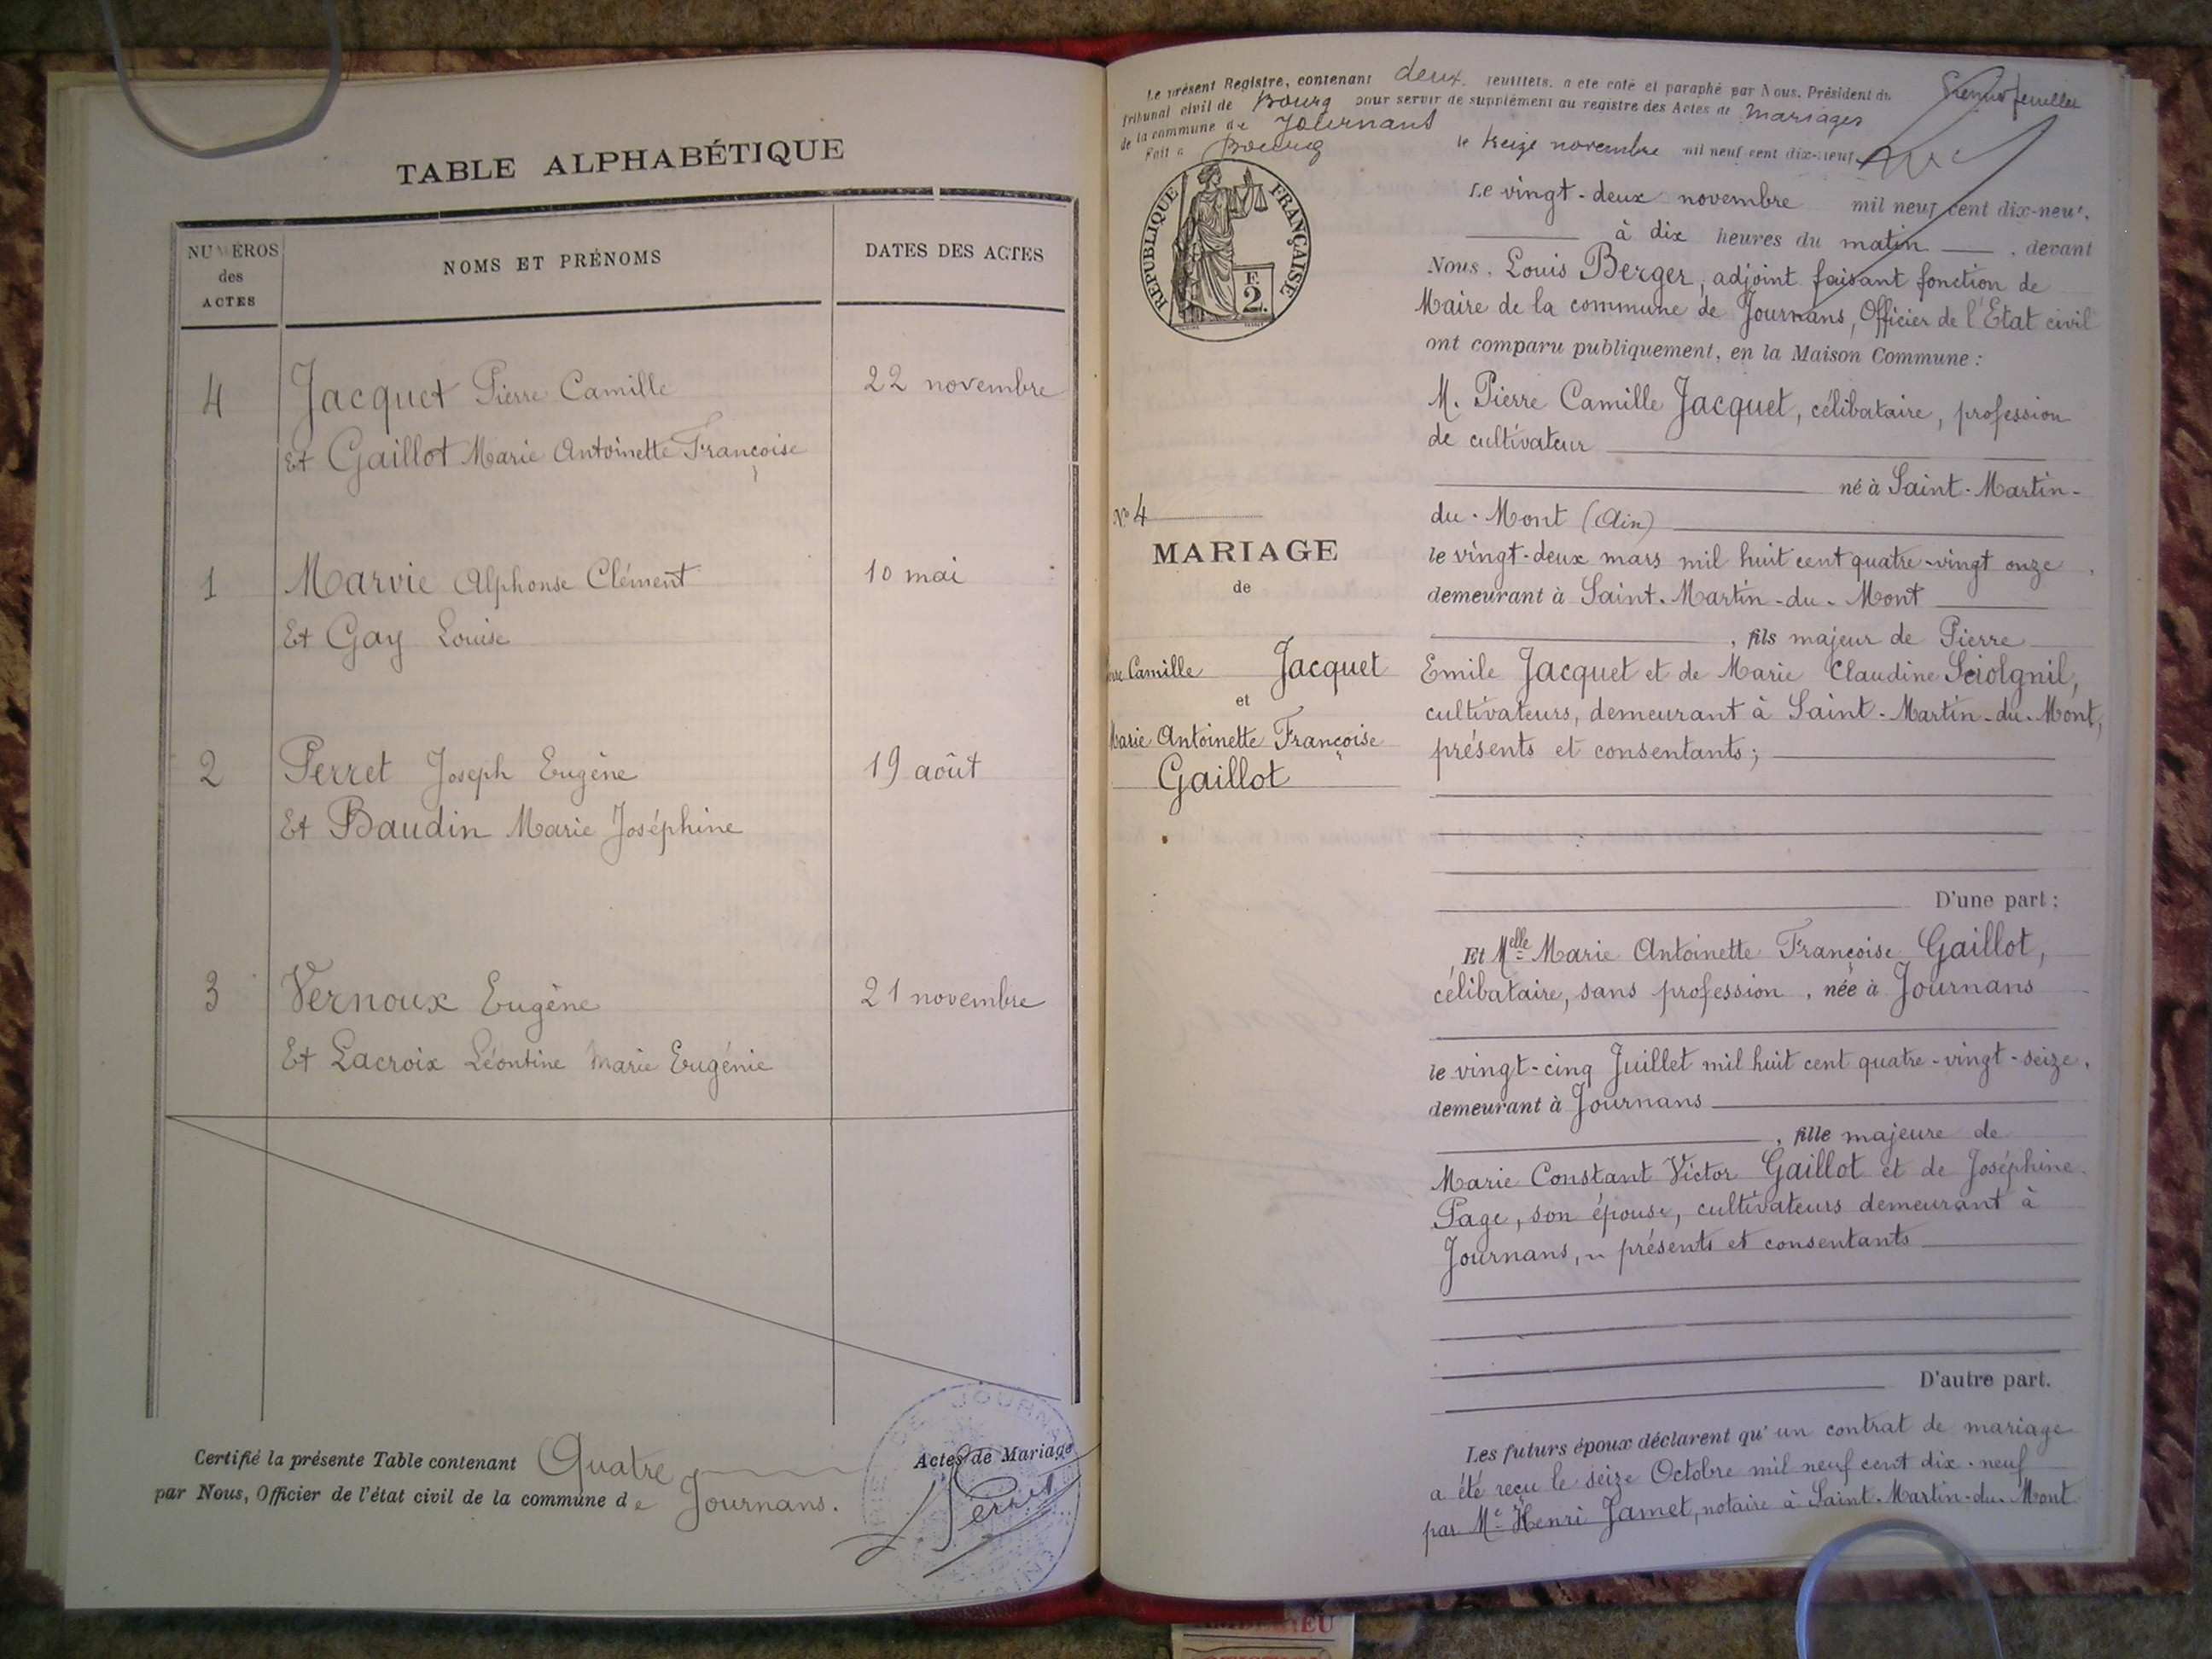 TABLE ALPHABÉTIQUE
NUMÉROS
des
ACTES
NOMS ET PRÉNOMS
DATES DES ACTES
4
Jacquet Pierre Camille
22 novembre
Et Gaillot Marie Antoinette Françoise
1
Marvie Alphonse Clément
10 mai
Et Gay Louise
2
Perret Joseph Eugène
19 août
Et Baudin Marie Joséphine
3
Vernoux Eugène
21 novembre
Et Lacroix Léontine Marie Eugénie
Certifié la présente Table contenant Quatre Actes de Mariage
par Nous, Officier de l'état civil de la commune de Journans.
Perret
Le présent Registre, contenant deux feuillets, a été coté et paraphé par Nous, Président du
Tribunal civil de Bourg pour servir de supplément au registre des Actes de Mariages
de la commune de Journans
Fait à Bourg le treize novembre mil neuf cent dix-neuf
feuillet
RÉPUBLIQUE FRANÇAISE
F.
2.
Le vingt-deux novembre mil neuf cent dix-neuf,
à dix heures du matin, devant
Nous, Louis Berger, adjoint faisant fonction de
Maire de la commune de Journans, Officier de l'Etat civil
ont comparu publiquement, en la Maison Commune :
M. Pierre Camille Jacquet, célibataire, profession
de cultivateur
né à Saint-Martin-
du-Mont (Ain)
le vingt-deux mars mil huit cent quatre-vingt onze,
demeurant à Saint-Martin-du-Mont
, fils majeur de Pierre
Emile Jacquet et de Marie Claudine
cultivateurs, demeurant à Saint-Martin-du-Mont,
présents et consentants;
D'une part :
Nº 4
MARIAGE
de
Camille Jacquet
et
Marie Antoinette Françoise
Gaillot
Et Melle Marie Antoinette Françoise Gaillot,
célibataire, sans profession, née à Journans
le vingt-cinq Juillet mil huit cent quatre-vingt-seize,
demeurant à Journans
, fille majeure de
Marie Constant Victor Gaillot et de Joséphine
Page, son épouse, cultivateurs demeurant à
Journans, présents et consentants
D'autre part.
Les futurs époux déclarent qu'un contrat de mariage
a été reçu le seize Octobre mil neuf cent dix-neuf
par Me Henri Jamet, notaire à Saint-Martin-du-Mont